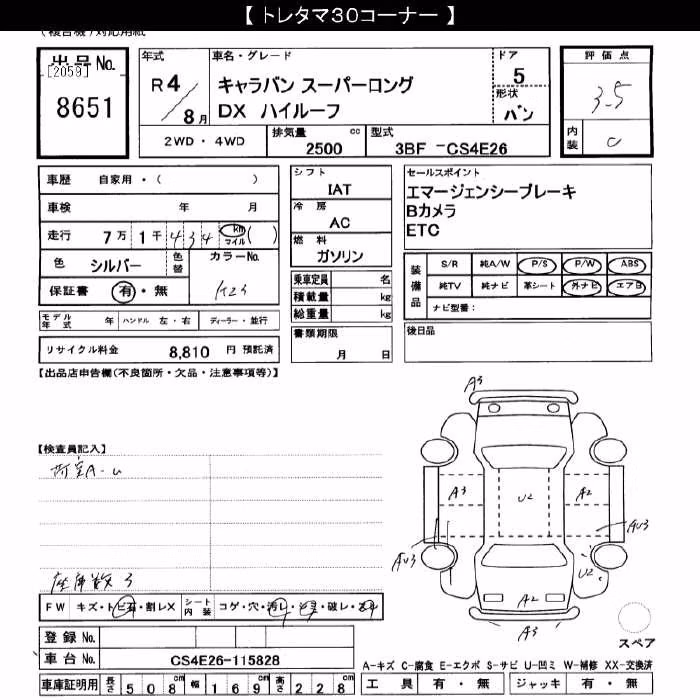 【 トレタマ30コーナー 】
(複合機)対応用紙
出品No.
[2059]
8651
年式
R4/8月
車名・グレード
キャラバン スーパーロング
DX ハイルーフ
ドア
5
形状
バン
評価点
3.5
内装
C
2WD・4WD
排気量
2500 cc
型式
3BF -CS4E26
車歴 自家用・( )
車検 年 月
走行 7万1千434 km マイル ( )
色 シルバー 色替 カラーNo.
K23
保証書 有・無
モデル年式 年 ハンドル 左・右 ディーラー・並行
リサイクル料金 8,810 円 預託済
シフト
IAT
冷房
AC
燃料
ガソリン
乗車定員 名
積載量 kg
総重量 kg
書類期限
月 日
セールスポイント
エマージェンシーブレーキ
Bカメラ
ETC
装備品
S/R 純A/W P/S P/W ABS
純TV 純ナビ 革シート 外ナビ エアB
ナビ型番:
後日品
【出品店申告欄(不良箇所・欠品・注意事項等)】
【検査員記入】
荷室A-U
座席数3
A3
A3
U2
A2
AU3
AU3
U2
A2
A3
スペア
FW キズ・トビ石・割レX シート内装 コゲ・穴・汚レ・破レ・
登録 No.
車台 No. CS4E26-115828
車庫証明用 長さ 508cm 幅 169cm 高さ 228cm
A-キズ C-腐食 E-エクボ S-サビ U-凹ミ W-補修 XX-交換済
工具 有・無 ジャッキ 有・無